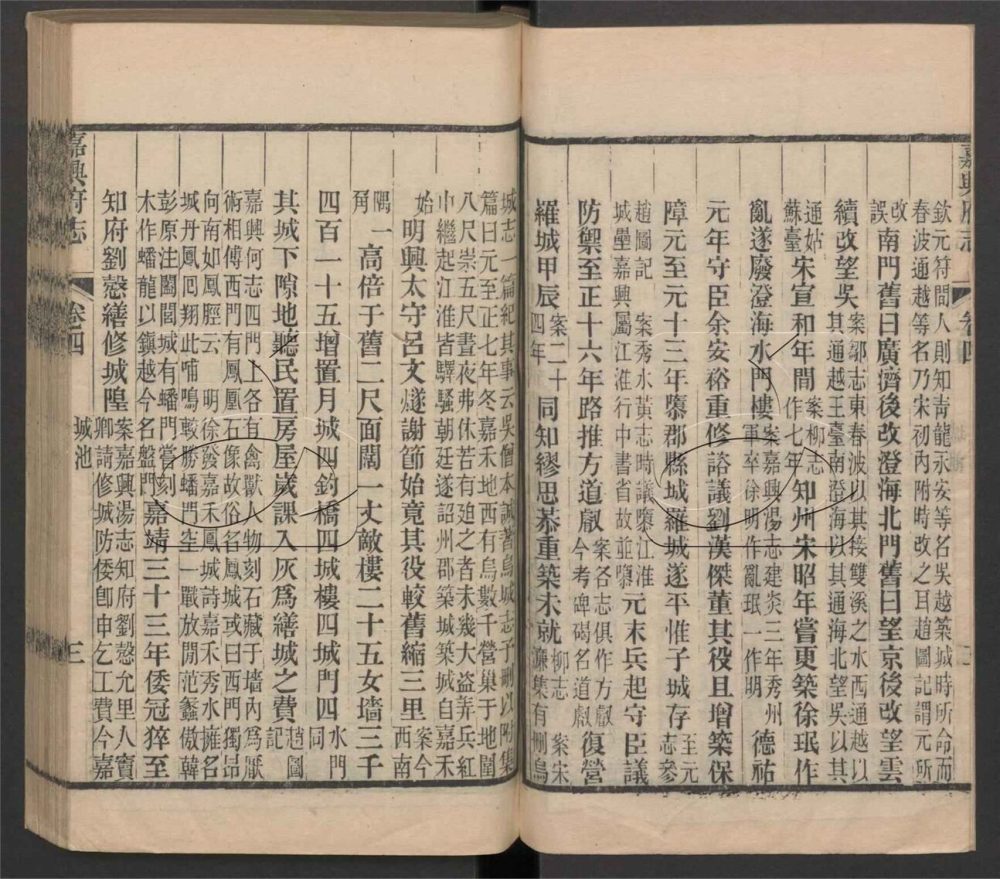 嘉興府志 卷四 三
欽元符間人則知青龍永安等名吳越築城時所命而
春波通越等名乃宋初內附時改之耳趙圖記謂元所
改誤南門舊曰廣濟後改澄海北門舊曰望京後改望雲
續改望吳案鄒志東春波以其接雙溪之水西通越以其通越王臺南澄海以其通海北望吳以其
通姑蘇臺宋宣和年間案柳志作七年知州宋昭年嘗更築徐珉作
亂遂廢澄海水門樓案嘉興湯志建炎三年秀州軍卒徐明作亂珉一作明德祐
元年守臣余安裕重修諮議劉漢傑董其役且增築保
障元至元十三年隳郡縣城羅城遂平惟子城存至元志參
趙圖記 案秀水黃志時議隳江淮城壘嘉興屬江淮行中書省故並隳元末兵起守臣議
防禦至正十六年路推方道叡案各志俱作方叡今考碑碣名道叡復營
羅城甲辰案二十四年同知繆思恭重築未就柳志 案宋濂集有刪烏
城志一篇紀其事云吳僧本誠著烏城志予刪以附集
篇曰元至正七年冬嘉禾地西有烏數千營巢于地圍
八尺崇五尺晝夜弗休若有迫之者未幾大盜弄兵紅
巾繼起江淮皆驛騷朝廷遂詔州郡築城築城自嘉禾
始明興太守呂文燧謝節始竟其役較舊縮三里案今西南
隅角一高倍于舊二尺面闊一丈敵樓二十五女墻三千
四百一十五增置月城四釣橋四城樓四城門四水門同
其城下隙地聽民置房屋歲課入灰爲繕城之費趙圖記
嘉興何志四門上各有禽獸人物刻石藏于墻內爲厭
術相傅西門有鳳凰石像故俗名鳳城或曰西門獨昂
向南如鳳脛云 明徐發嘉禾鳳城詩嘉禾秀水擁名
城丹鳳囘翔此哺鳴敢勝蟠門空一戰放閒范蠡傲韓
彭原注闔閭城有蟠門嘗刻
木作蟠龍以鎮越今名盤門嘉靖三十三年倭冦猝至
知府劉慤繕修城隍案嘉興湯志知府劉慤允里人竇卿請修城防倭卽申乞工費今嘉
嘉興府志 卷四 城池 三